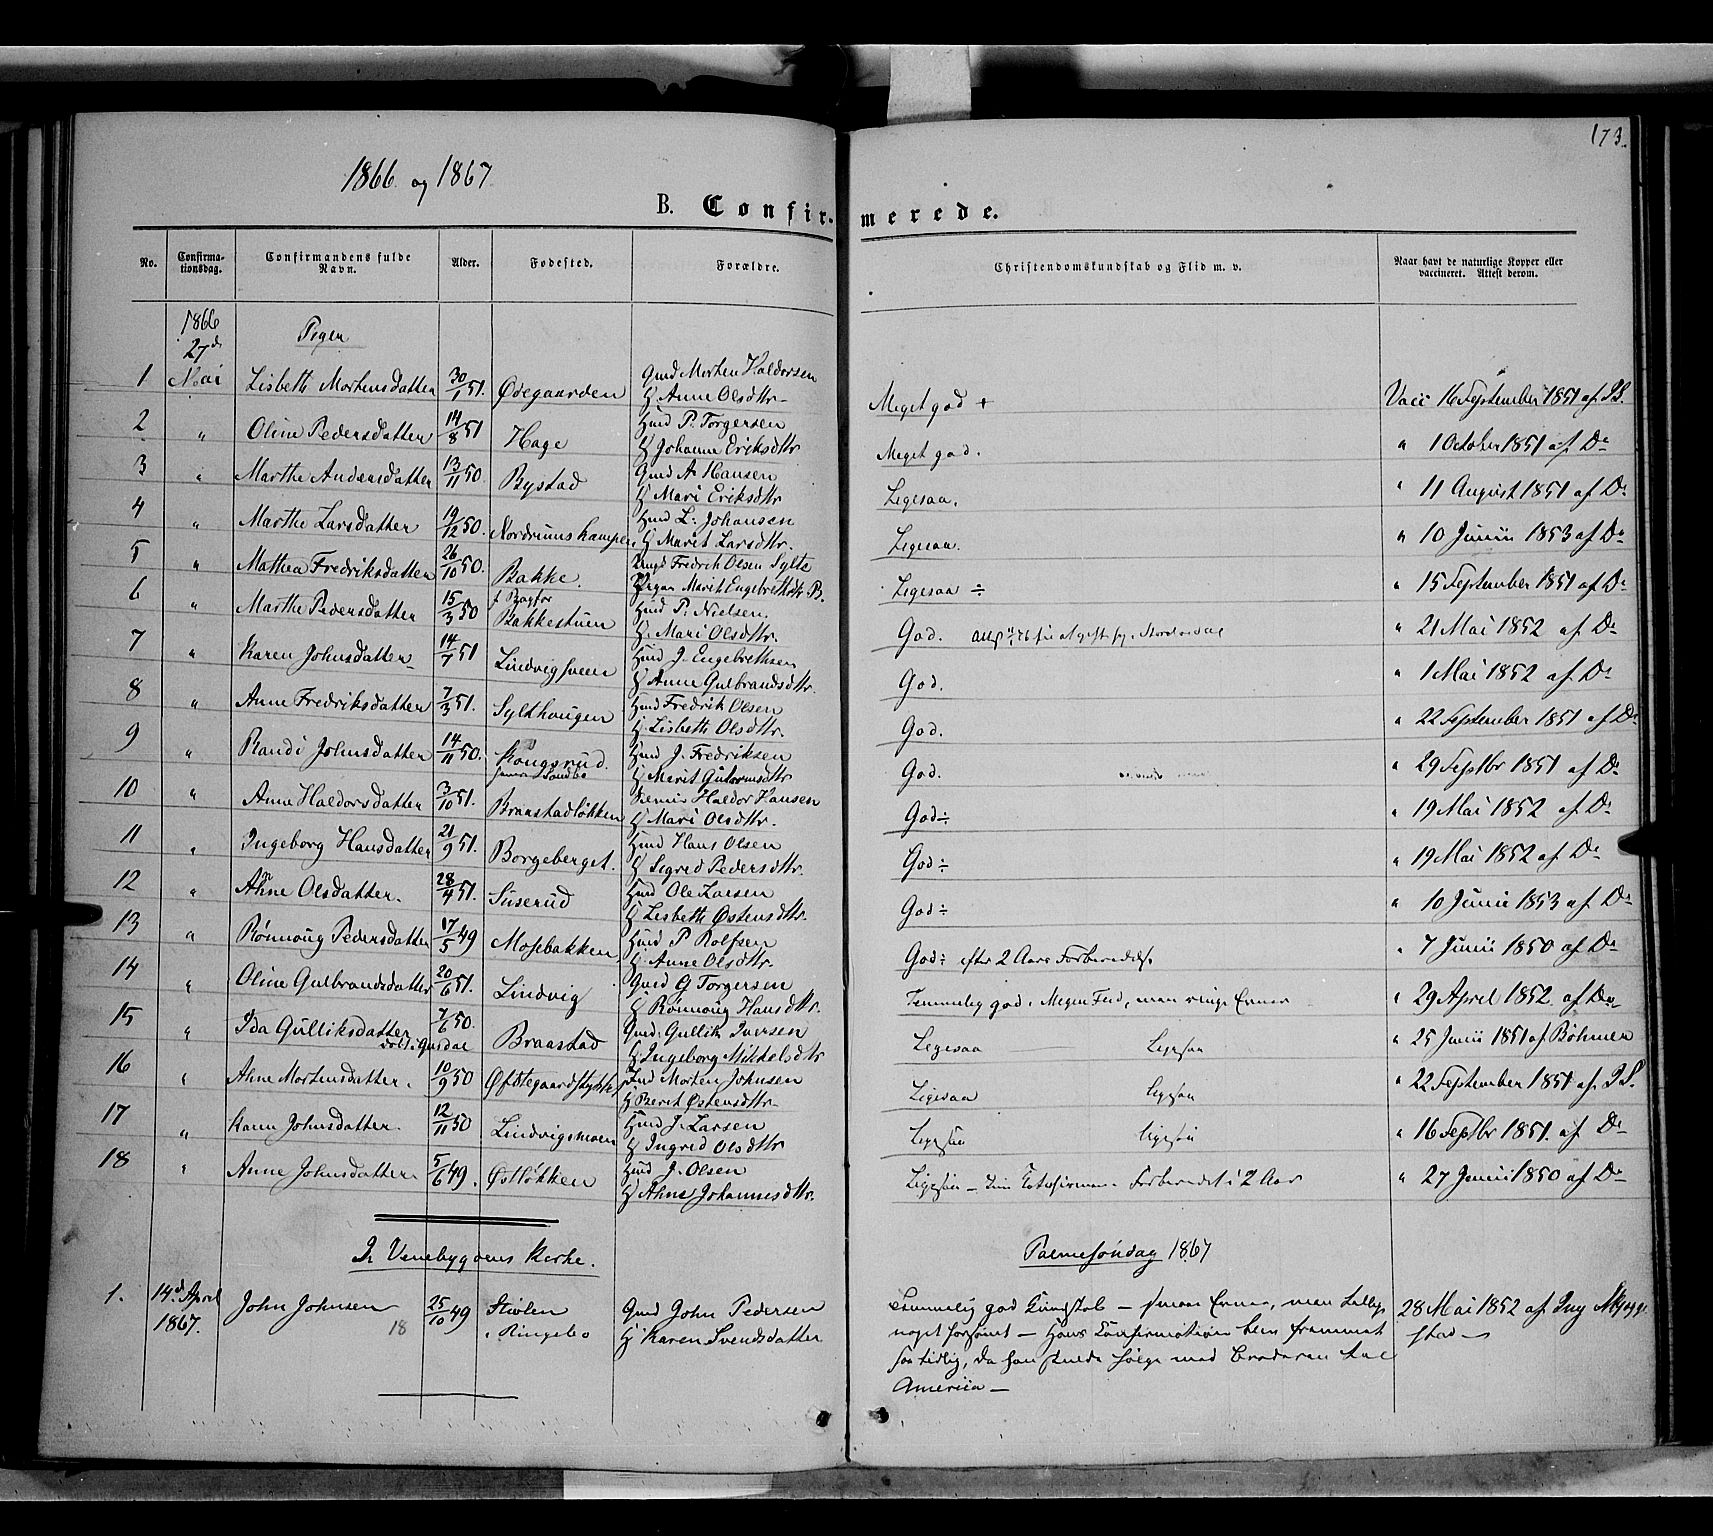 173.
1866 og 1867
B. Confirmerede.
No. Confirmationsdag. Confirmandens fulde Navn. Alder. Fødested. Forældre. Christendomskundskab og Flid m. v. Naar havt de naturlige Kopper eller vaccineret. Attest derom.
1866 Piger
27de
1 Mai Lisbeth Mortensdatter 30/1 51. Ødegaarden Gmd Morten Haldorsen Meget god + Vacc 16 September 1851 af J.S.
H Anne Olsdttr
2 " Oline Pedersdatter 14/8 51 Hage Hmd P. Torgersen Meget god. " 1 October 1851 af Do
H Johanne Eriksdttr
3 " Marthe Andersdatter 13/11 50. Bystad Gmd A Hansen Ligesaa. " 11 August 1851 af Do
H Mari Eriksdttr
4 " Marthe Larsdatter 19/12 50. Nordrumskampen Hmd L: Johansen Ligesaa. " 10 Junii 1853 af Do
H Marit Larsdttr.
5 " Mathea Fredriksdatter 26/10 50. Bakke. Fredrik Olsen Sylte Ligesaa ÷ " 15 September 1851 af Do
Pigen Marit Engebretsdttr B.
6 " Marthe Pedersdatter 15/3 50 Bakkestuen Hmd P. Nielsen God. " 21 Mai 1852 af Do
H. Mari Olsdttr.
7 " Karen Johnsdatter 14/7 51 Lindvigsveen Hmd J. Engebrethsen God. " 1 Mai 1852 af Do
H Anne Gulbrandsdttr.
8 " Anne Fredriksdatter 7/3 51. Sylthougen Hmd Fredrik Olsen God. " 22 September 1851 af Do
H Lisbeth Olsdttr.
9 " Randi Johnsdatter 14/11 50. Kongsrud. Hmd J. Fredriksen God. " 29 Septbr 1851 af Do
H Marit Guttormsdttr
10 " Anne Haldorsdatter 3/10 51. Braastadløkken Haldor Hansen God ÷ " 19 Mai 1852 af Do
H Mari Olsdttr.
11 " Ingeborg Hansdatter 21/9 51. Borgeberget. Hmd Hans Olsen God ÷ " 19 Mai 1852 af Do
H Sigred Pedersdttr.
12 " Ahne Olsdatter. 28/4 51. Suserud Hmd Ole Larsen God ÷ " 10 Junii 1853 af Do
H Lisbeth Østensdttr.
13 " Rønnoug Pedersdatter 17/5 49 Mosebakken Hmd P Rolfsen God ÷ efter 2 Aars Forberedelse. " 7 Junii 1850 af Do
H. Anne Olsdttr.
14 " Oline Gulbrandsdatter 20/6 51. Lindvig Gmd G Torgersen Temmelig god. Megen Flid, men ringe Evner " 29 April 1852. af Do
H Rønnoug Hansdttr.
15 " Ida Gulliksdatter 7/6 50. Braastad Gmd: Gullik Iversen Ligesaa Ligesaa " 25 Junii 1851 af Bøhmer
døbt i Gusdal H Ingeborg Mikkelsdttr
16 " Ahne Mortensdatter. 10/9 50 Øfstegaardstykket Ind Morten Johnsen Ligesaa ligesaa " 22 September 1851 af J.S.
H Berit Østensdttr
17 " Karen Johnsdatter. 12/11 50 Lindvigsmoen Hmd J. Larsen Ligesaa ligesaa " 16 Septbr 1851. af Do
H Ingrid Olsdttr
18 " Anne Johnsdatter 5/6 49. Østløkken Hmd J. Olsen Ligesaa Forberedet i 2 Aar " 27 Junii 1850 af Do
H Ahne Johannesdttr.
I Venebygdens Kirke. Palmesøndag 1867
1. 14de April John Johnsen 25/10 49 Stivlen Gmd John Pedersen Temmelig god Kundskab – smaae Evner, men
1867. 18 i Ringebo H Karen Svendsdatter noget forsømt – Hans Confirmation blev fremmet
28 Mai 1852 af Ing
stad
saa tidlig, da han skulde følge med Broderen til
America –